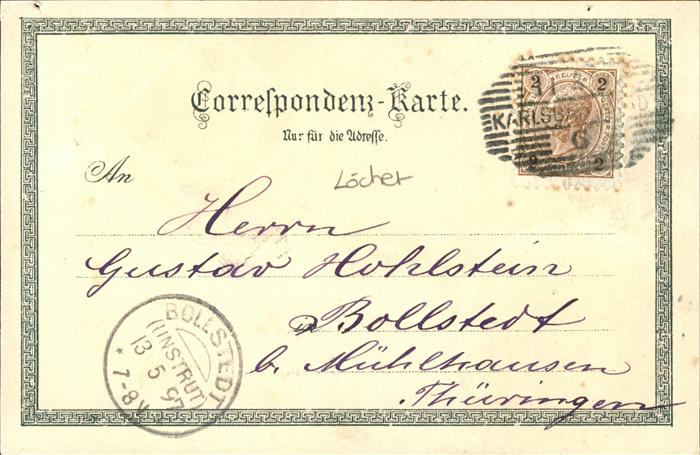 Correspondenz-Karte.
Nur für die Adresse.
An
Löcher
Herrn
Gustav Hohlstein
Bollstedt
b. Mühlhausen
Thüringen
2 KREUZER 2
KARLSBAD
6
2 2
BOLLSTEDT
(UNSTRUT)
13 5 97
* 7-8